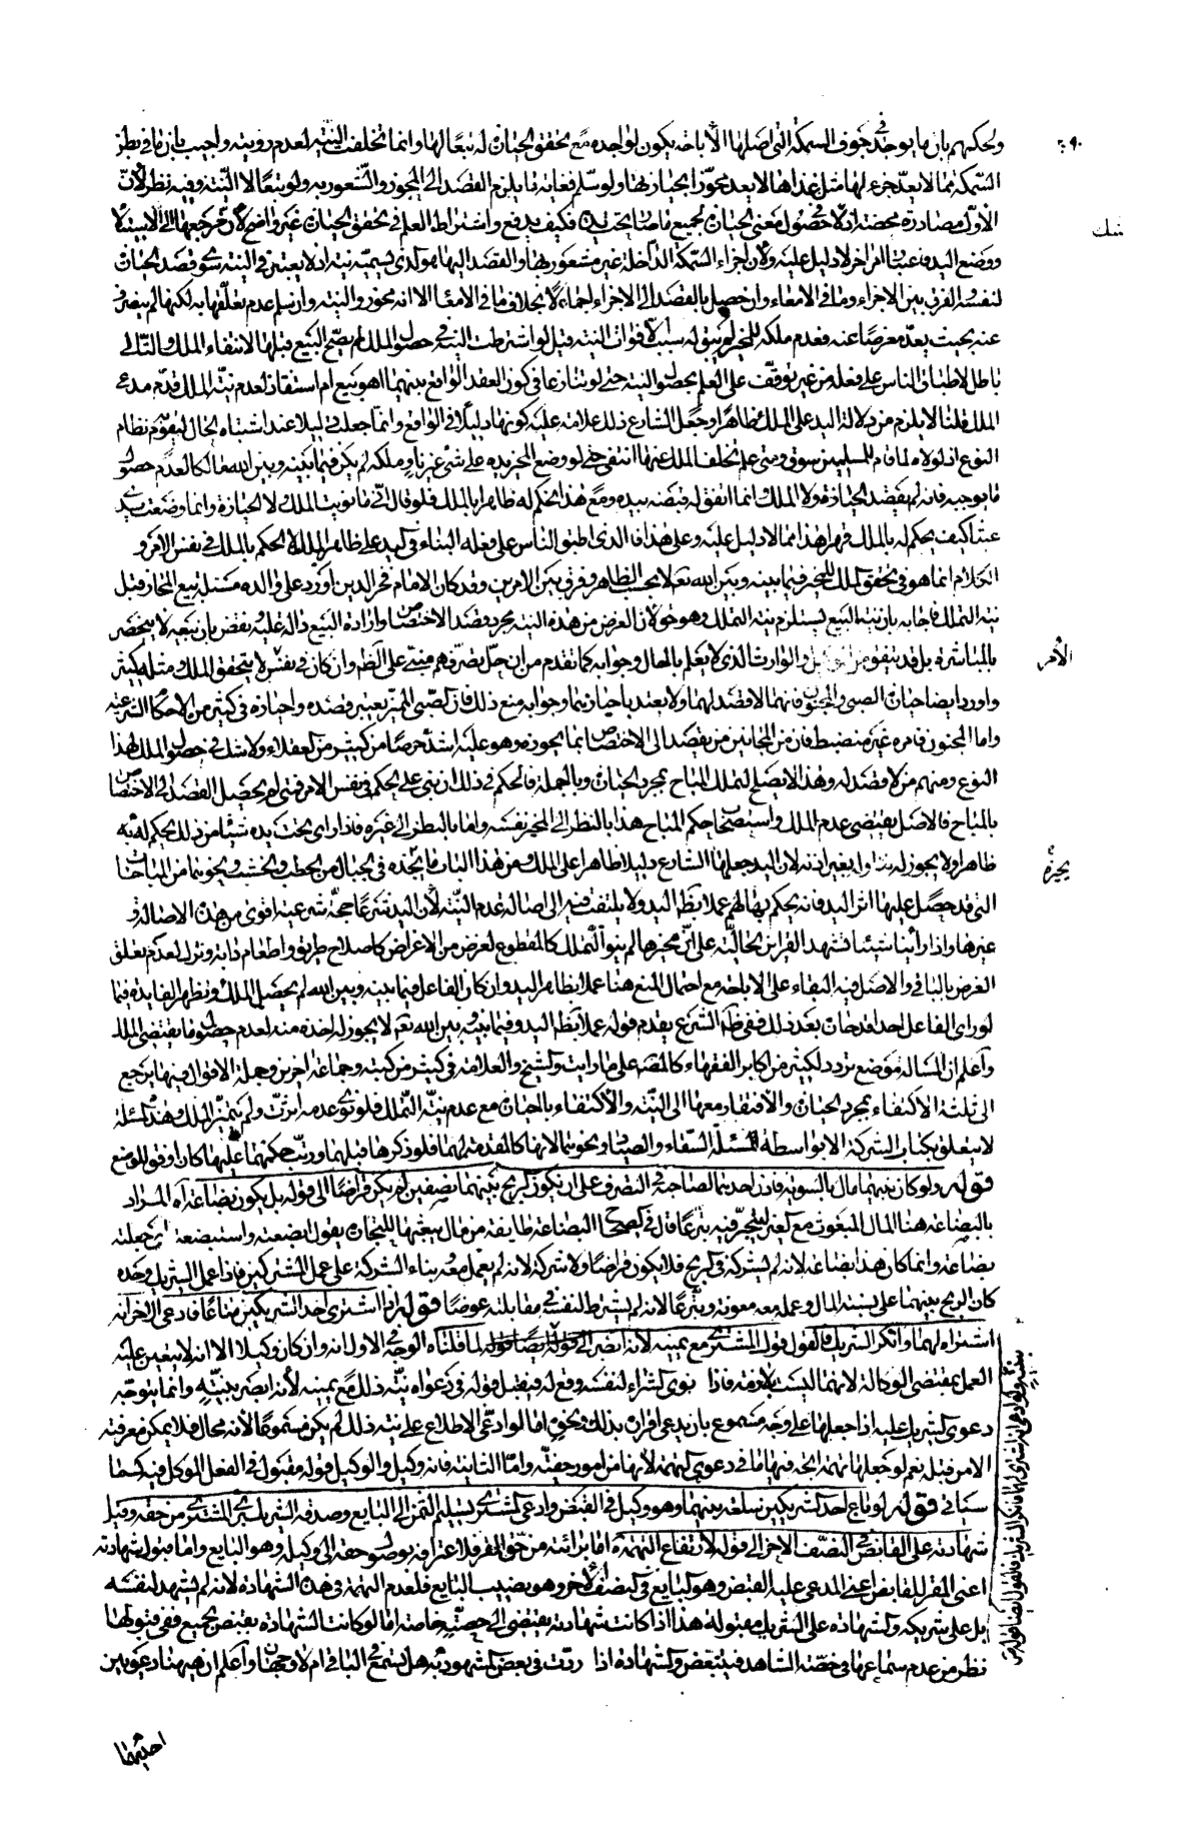 ولحكمهم بان ما يوجد في جوف السمكة التي اصلها الاباحة يكون لواجده مع تحقق الحيازة له تبعا لها وانما تخلفت النية لعدم رويته واجيب بان ما في بطن
السمكة مما لا يعد جزء لها مثل غذاها لا يعد محوزا بحيازتها ولو سلم فغايته ما يلزم القصد الى المحوز والشعور به ولو تبعا لا النية وفيه نظر لان
الاول مصادرة محضة اذ لا في حصول معنى الحيازة لجميع ما صار تحت يده فكيف يدفع واشتراط العلم في تحقق الحيازة غير واضح لان مرجعها الى الاستيلاء
ووضع اليد فاعتبار امر اخر لا دليل عليه ولان اجزاء السمكة الداخلة غير مشعور بها والقصد اليها هو الذي يسميه نية اذ لا يعتبر في النية سوى قصد الحيازة
لنفسه والفرق بين الاجزاء وما في الامعاء وان حصل بالقصد الى الاجزاء اجمالا بخلاف ما في الامعاء الا انه محوز والنية وان سلم عدم تعلقها به لكنها لم يصرف
عنه بحيث يعد معرضا عنه فعدم ملكه للمحرز لم يبق له سبب الا فوات النية وقيل لو اشترطت النية في حصول الملك لم يصح البيع قبلها لانتفاء الملك والتالي
باطل لاطباق الناس على فعله من غير توقف على العلم بحصول النية حتى لو تنازعا في كون العقد الواقع بينهما اهو بيع ام استنقاذ لعدم نية الملك قدم مدعي
الملك قلنا لا يلزم من دلالة اليد على الملك ظاهرا وجعل الشارع ذلك علامة عليه كونها دليلا في الواقع وانما جعلت دليلا عند اشتباه الحال ليقوم نظام
النوع اذ لولاه لما قام للمسلمين سوق ومتى علم تخلف الملك عنها انتفى حتى لو وضع المحرز يده على شئ غير ناو ملكه لم يكن فيما بينه وبين الله مالكا لعدم حصول
ما يوجبه فانه لم يقصد الحيازة ولا الملك وانما اتفق له قبضه بيده ومع هذا يحكم له ظاهرا بالملك فلو قال اني ما نويت الملك ولا الحيازة وانما وضعت يدي
عبثا كيف يحكم له بالملك قهرا هذا مما لا دليل عليه وعلى هذا فالذي اطبق الناس على فعله البناء في اليد على ظاهر الملك لا الحكم بالملك في نفس الامر و
الكلام انما هو في تحقق الملك للمحرز فيما بينه وبين الله تع لا بحسب الظاهر وفرق بين الامرين وقد كان الامام فخر الدين اورد على والده مسئلة بيع المحاز قبل
نية التملك فاجابه بان نية البيع يستلزم نية التملك وهو حق لان الغرض من هذه النية مجرد قصد الاختصاص وارادة البيع دالة عليه ونقض بان بيعه لا ينحصر
بالمباشرة بل قد يتفق من الوكيل والوارث الذي لا يعلم بالحال وجوابه كما تقدم من ان حل تصرفهم مبني على الظاهر وان كان في نفس الامر لا يتحقق الملك ومثله كثير
واورد ايضا حيازة الصبي والمجنون فانهما لا قصد لهما ولا يعتد باحيازتهما وجوابه منع ذلك فان الصبي المميز يعتبر قصده واحيازه في كثير من الاحكام الشرعية
واما المجنون فامره غير منضبط فان من المجانين من يقصد الى الاختصاص بما يحوزه وهو عليه اشد حرصا من كثير من العقلاء ولا شك في حصول الملك لهذا
النوع ومنهم من لا قصد له وهذا لا يصلح لتملك المباح بمجرد الحيازة وبالجملة فالحكم في ذلك ان بني على الحكم في نفس الامر فمتى لم يحصل القصد الى الاختصاص
بالمباح فالاصل يقتضي عدم الملك واستصحاب حكم المباح هذا بالنظر الى المحرز نفسه واما بالنظر الى غيره فاذا راى تحت يده شيئا من ذلك يحكم له به
ظاهرا ولا يجوز له تناوله بغير اذنه لان اليد جعلها الشارع دليلا ظاهرا على الملك ومن هذا الباب ما يتخذه في الجبال من الحطب والخشب ونحوهما من المباحات
التي قد حصل عليها اثر اليد فانه يحكم بها لهم عملا بظاهر اليد ولا يلتفت فيه الى اصالة عدم النية لان اليد شرعا حجة شرعية اقوى من هذه الاصالة و
غيرها واذا راينا شيئا تشهد القراين الحالية على ان محرزها لم ينو التملك كالمقطوع لغرض من الاغراض كاصلاح طريق واطعام دابة وترك لعدم تعلق
الغرض بالباقي والاصل فيه البقاء على الاباحة مع احتمال المنع هنا عملا بظاهر اليد وان كان الفاعل فيما بينه وبين الله لم يحصل الملك وتظهر الفايدة فيما
لو راى الفاعل احدا قد حازه بعد ذلك ففي ظاهر الشرع يقدم قوله عملا بظاهر اليد وفيما بينه وبين الله تع لا يجوز له اخذه منه لعدم حصول ما يقتضي الملك
واعلم ان المسالة موضع تردد لكثير من اكابر الفقهاء كالمصنف على ما رايت والشيخ والعلامة في كثير من كتبه وجماعة اخرين وجملة الاقوال فيها يرجع
الى ثلثة الاكتفاء بمجرد الحيازة والافتقار معها الى النية والاكتفاء بالحيازة مع عدم نية التملك فلو نوى عدمه اثرت ولم يتميز الملك وهذه المسئلة
لا يتعلق بكتاب الشركة الا بواسطة المسئلة السقاء والصياد ونحوهما لانها كالمقدمة لهما فلو ذكرها قبلهما ورتب حكمهما عليها كان اوفق للوضع
قوله ولو كان بينهما مال بالسوية فاذن احدهما لصاحبه في التصرف على ان يكون الربح بينهما نصفين لم يكن قراضا الى قوله بل يكون بضاعة اه المراد
بالبضاعة هنا المال المبعوث مع الغير ليتجر فيه تبرعا قال في الصحاح البضاعة طايفة من مال يبعثها للتجارة يقول ابضعته واستبضعته اي جعلته
بضاعة وانما كان هذا بضاعة لانه لم يشركه في الربح فلا يكون قراضا ولا شركة لانه لم يعمل معه بناء الشركة على عمل الشريكين فاذا عمل الشريك وحده
كان الربح بينهما على نسبة المال وعمله معه معونة وتبرعا لانه لم يشترط لنفسه في مقابلته عوضا قوله اذا اشترى احد الشريكين متاعا فادعى الاخر انه
اشتراه لهما وانكر الشريك فالقول قول المشتري مع يمينه لانه ابصر بنيته لما قلناه الوجه في الاول انه وان كان وكيلا الا انه لا يتعين عليه
العمل بمقتضى الوكالة لانها ليست لازمة فاذا نوى الشراء لنفسه وقع له فيقبل قوله في دعواه نيته ذلك مع يمينه لانه ابصر بنيته وانما يتوجه
دعوى الشريك عليه اذا جعلها على وجه مسموع بان يدعي اقراره بذلك ونحوه اما لو ادعى الاطلاع على نيته ذلك لم يكن مسموعا لانه محال فلا يمكن معرفته
الا من قبله نعم لو جعلها تهمة اتجه فيها ما في دعوى التهمة لانها من امور خفية واما الثانية فانه وكيل والوكيل قوله مقبول في الفعل الموكل فيه كما
سياتي قوله لو باع احد الشريكين سلعة بينهما وهو وكيل في القبض وادعى المشتري تسليم الثمن الى البايع وصدقه الشريك برئ المشتري من حقه وقبل
شهادته على القابض في النصف الاخر الى قوله لارتفاع التهمة اما برائته من حق المقر فلاعترافه بوصول حقه الى وكيله وهو البايع واما قبول شهادته
اعني المقر للقابض اعني المدعى عليه القبض وهو البايع في النصف الاخر وهو نصيب البايع فلعدم التهمة في هذه الشهادة لانه لم يشهد لنفسه
بل على شريكه والشهادة على الشريك مقبولة هذا اذا كانت شهادته بقبض حصته خاصة اما لو كانت الشهادة بقبض الجميع ففي قبولها
نظر من عدم سماعها في حصة الشاهد فيتبعض والشهادة اذا ردت في بعض المشهود به هل يسمع في الباقي ام لا وجهان واعلم ان هيهنا دعويين
احديهما
شك
الامر
يحرزه